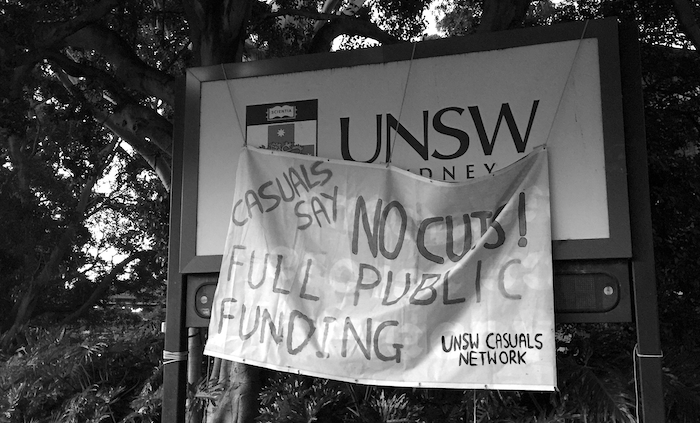 SCIENTIA
UNSW
DNEY
CASUALS
SAY
NO CUTS!
FULL PUBLIC
FUNDING
UNSW CASUALS
NETWORK